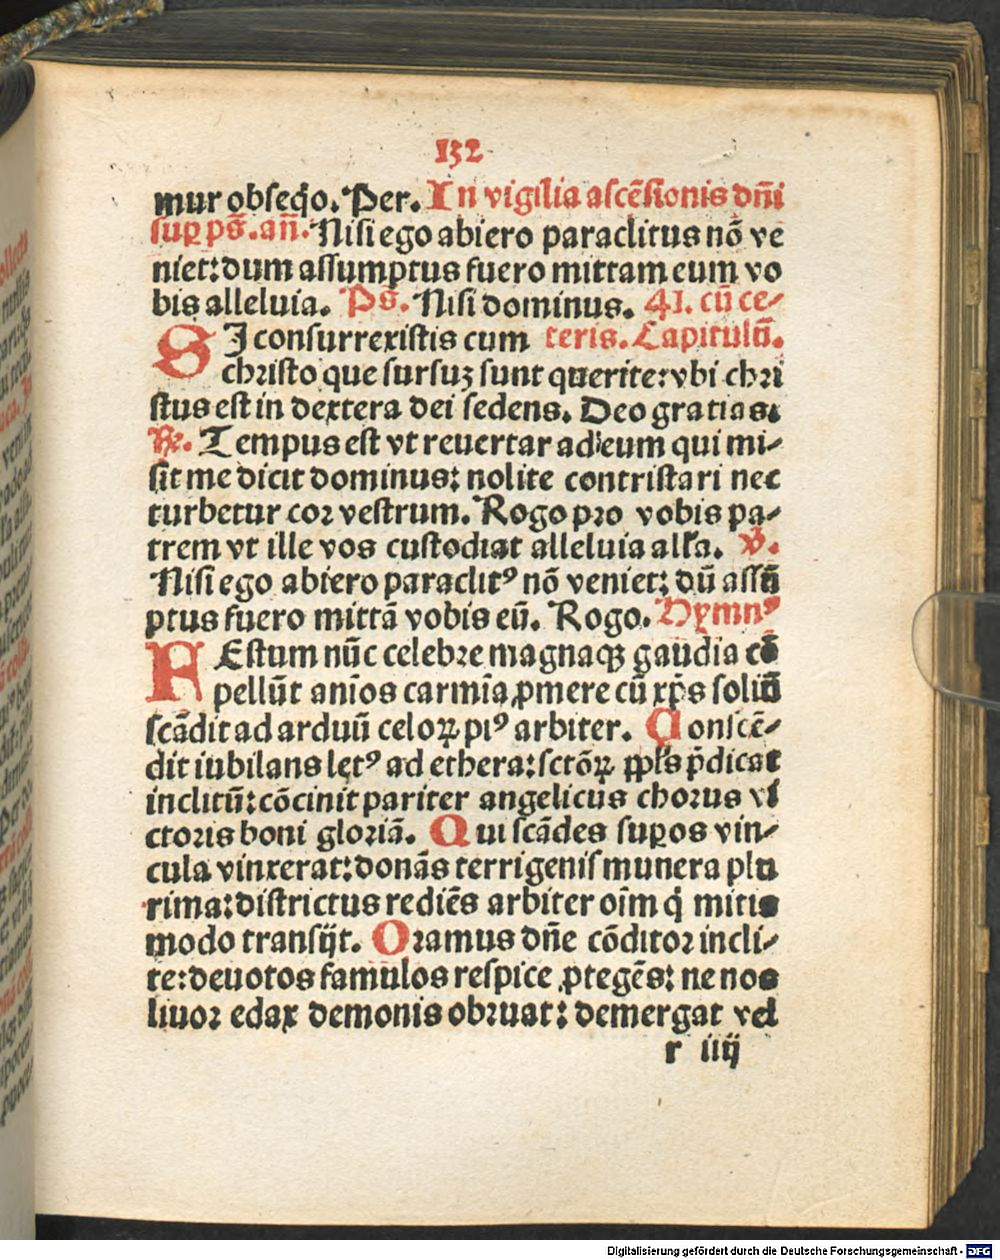 132
mur obseqo. Per. In vigilia ascēsionis dn̄i
sup ps̄. an̄. Nisi ego abiero paraclitus nō ve
niet: dum assumptus fuero mittam eum vo
bis alleluia. Ps̄. Nisi dominus. 41. cū ce-
SI consurrexistis cum teris. Capitulū.
christo que sursuꝫ sunt querite: vbi chri
stus est in dextera dei sedens. Deo gratias.
℟. Tempus est vt reuertar ad eum qui mi-
sit me dicit dominus: nolite contristari nec
turbetur cor vestrum. Rogo pro vobis pa-
trem vt ille vos custodiat alleluia all'a. ℣.
Nisi ego abiero paraclitꝰ nō veniet: dū assū
ptus fuero mittā vobis eū. Rogo. Hymnꝰ
FEstum nūc celebre magnaqꝫ gaudia cō
pellūt anīos carmīa ꝓmere cū xp̄s soliū
scādit ad arduū celoꝝ piꝰ arbiter. Conscē-
dit iubilans lętꝰ ad ethera: sctōꝝ ppl's p̄dicat
inclitū: cōcinit pariter angelicus chorus vi
ctoris boni gloriā. Qui scādes suꝑos vin-
cula vinxerat: donās terrigenis munera plu
rima: districtus rediēs arbiter oīm q̇ mitis
modo transijt. Oramus dn̄e cōditor incli-
te: deuotos famulos respice ꝓtegēs: ne nos
liuor edax demonis obruat: demergat vel
r iiij
Digitalisierung gefördert durch die Deutsche Forschungsgemeinschaft - DFG